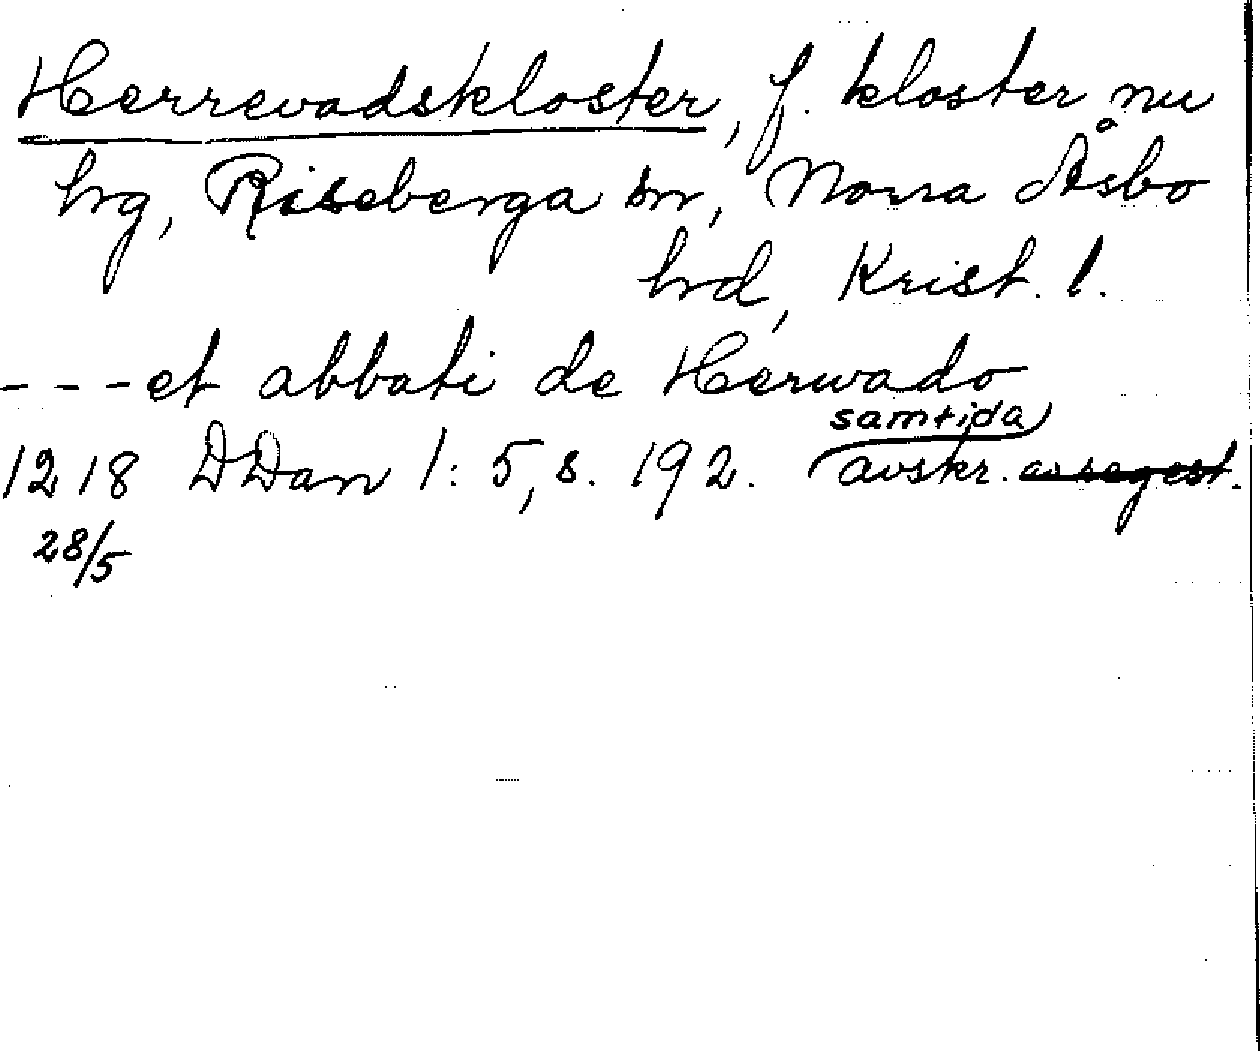 Herrevadskloster, f. kloster nu
hrg, Riseberga sn, Norra Åsbo
hrd, Krist. l.
---et abbati de Herwado
samtida
1218 DDan 1:5, s. 192. avskr. av regest.
28/5